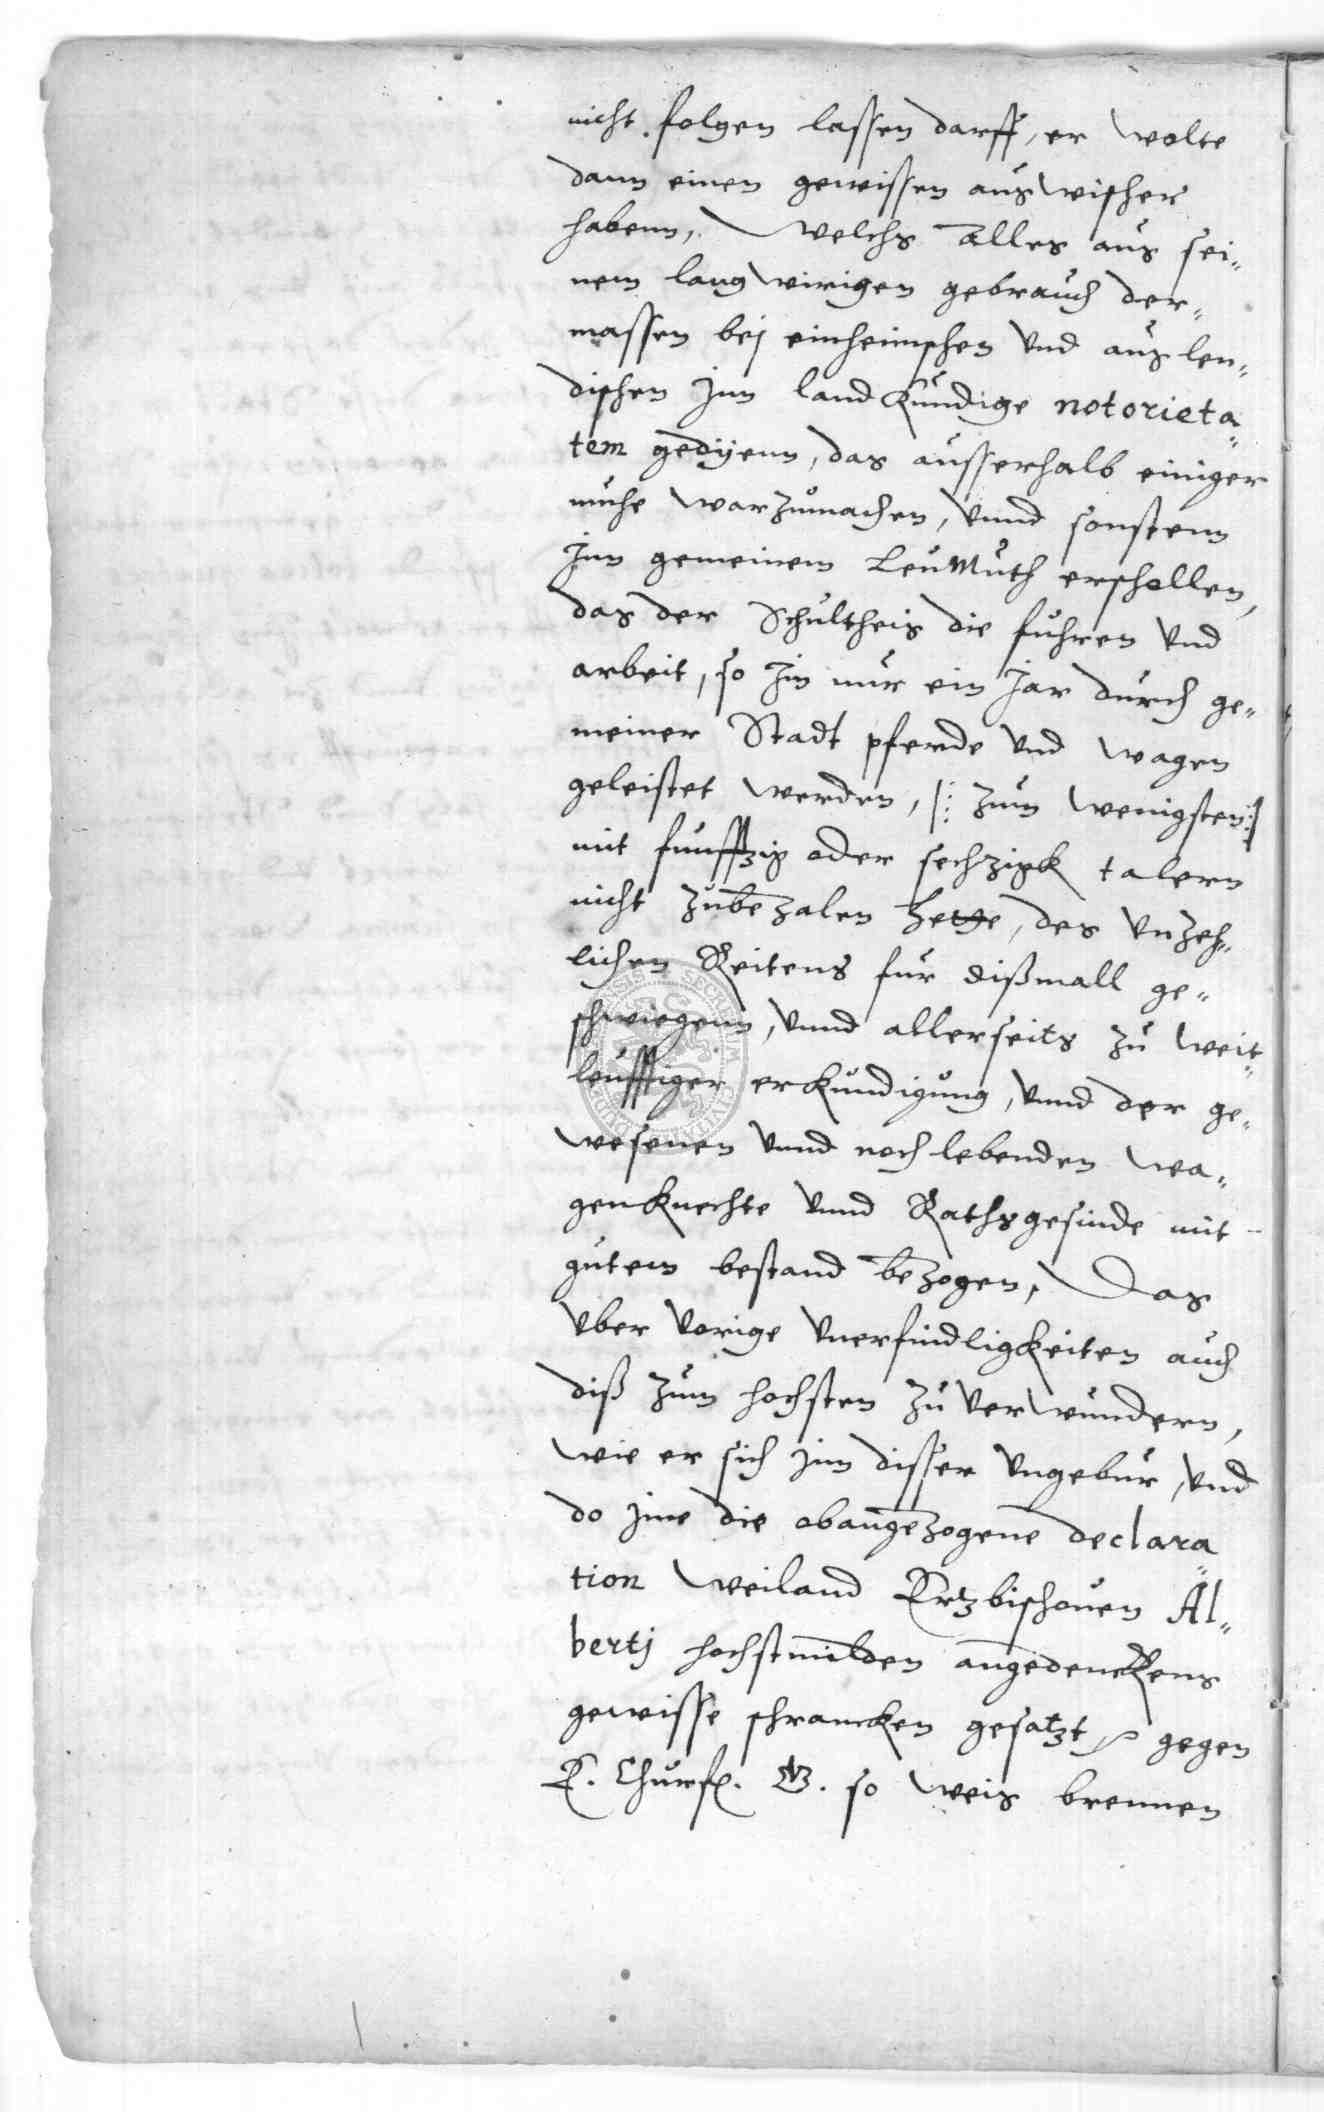 nicht folgen lassen darff, er wolte
dann einen gewissen auswischer
habenn, Welchs alles aus sei„
nem langwirigen gebrauch der„
massen bej einheimschen vnd auslen„
dischen Jnn landkundige notorieta„
tem gedijenn, das ausserhalb einiger
muhe warzumachen, vnnd sonstenn
Jnn gemeinem Leumuth erschollen,
das der Schultheis die fuhren vnd
arbeit, so Jm nur ein Jar durch ge„
meiner Stadt pferde vnd wagen
geleistet werden, |: zum wenigsten :|
mit funfftzig oder sechzigk talern
nicht zubezalen hette, des vnzeh„
lichen Reitens fur dißmall ge„
schwiegenn, vnnd allerseits zu weit„
leufftiger erkundigung, vnnd der ge„
wesenen vnnd noch lebenden wa„
genknechte vnnd Rathsgesinde mit
gutem bestand bezogen, Das
vber vorige vnerfindligkeiten auch
diß zum hochsten zu verwundern,
wie er sich jnn disser vngebur, vnd
do jme die obangezogene declara„
tion weiland Ertzbischouen Al„
bertj hochstmilden angedenckens
gewisse schrancken gesatzt, gegen
E. Churf. G. so weis brennen
SECRETUM CIVIUM